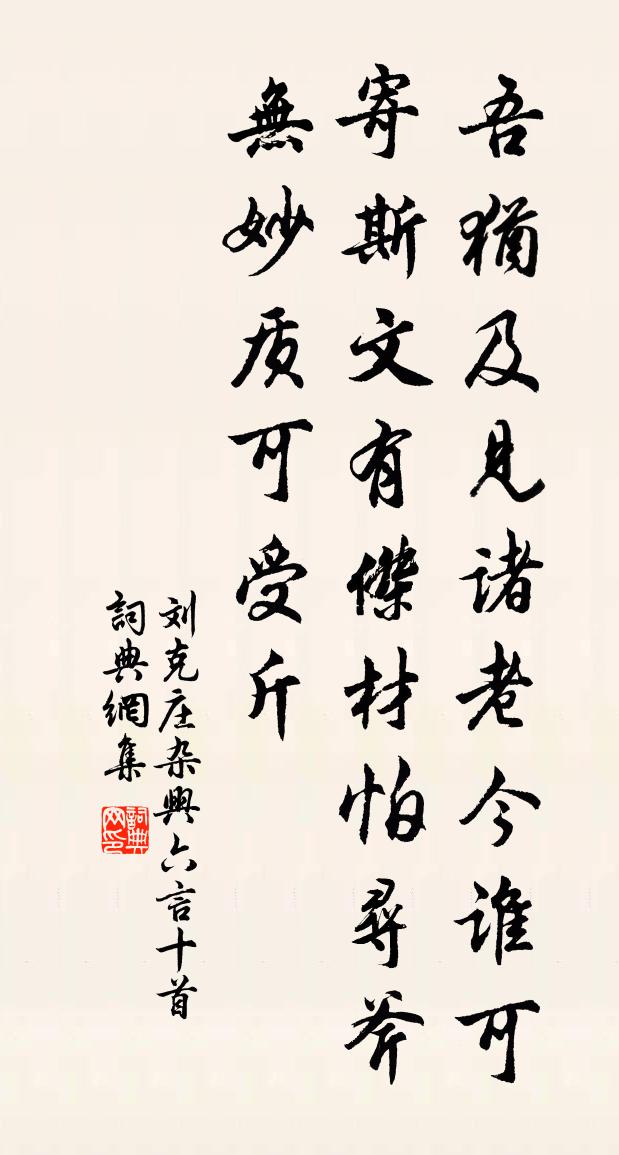 吾猶及見諸老今誰可
寄斯文有傑材怕尋斧
無妙质可受斤
刘克庄杂興六言十首
詞典網集
詞典網印